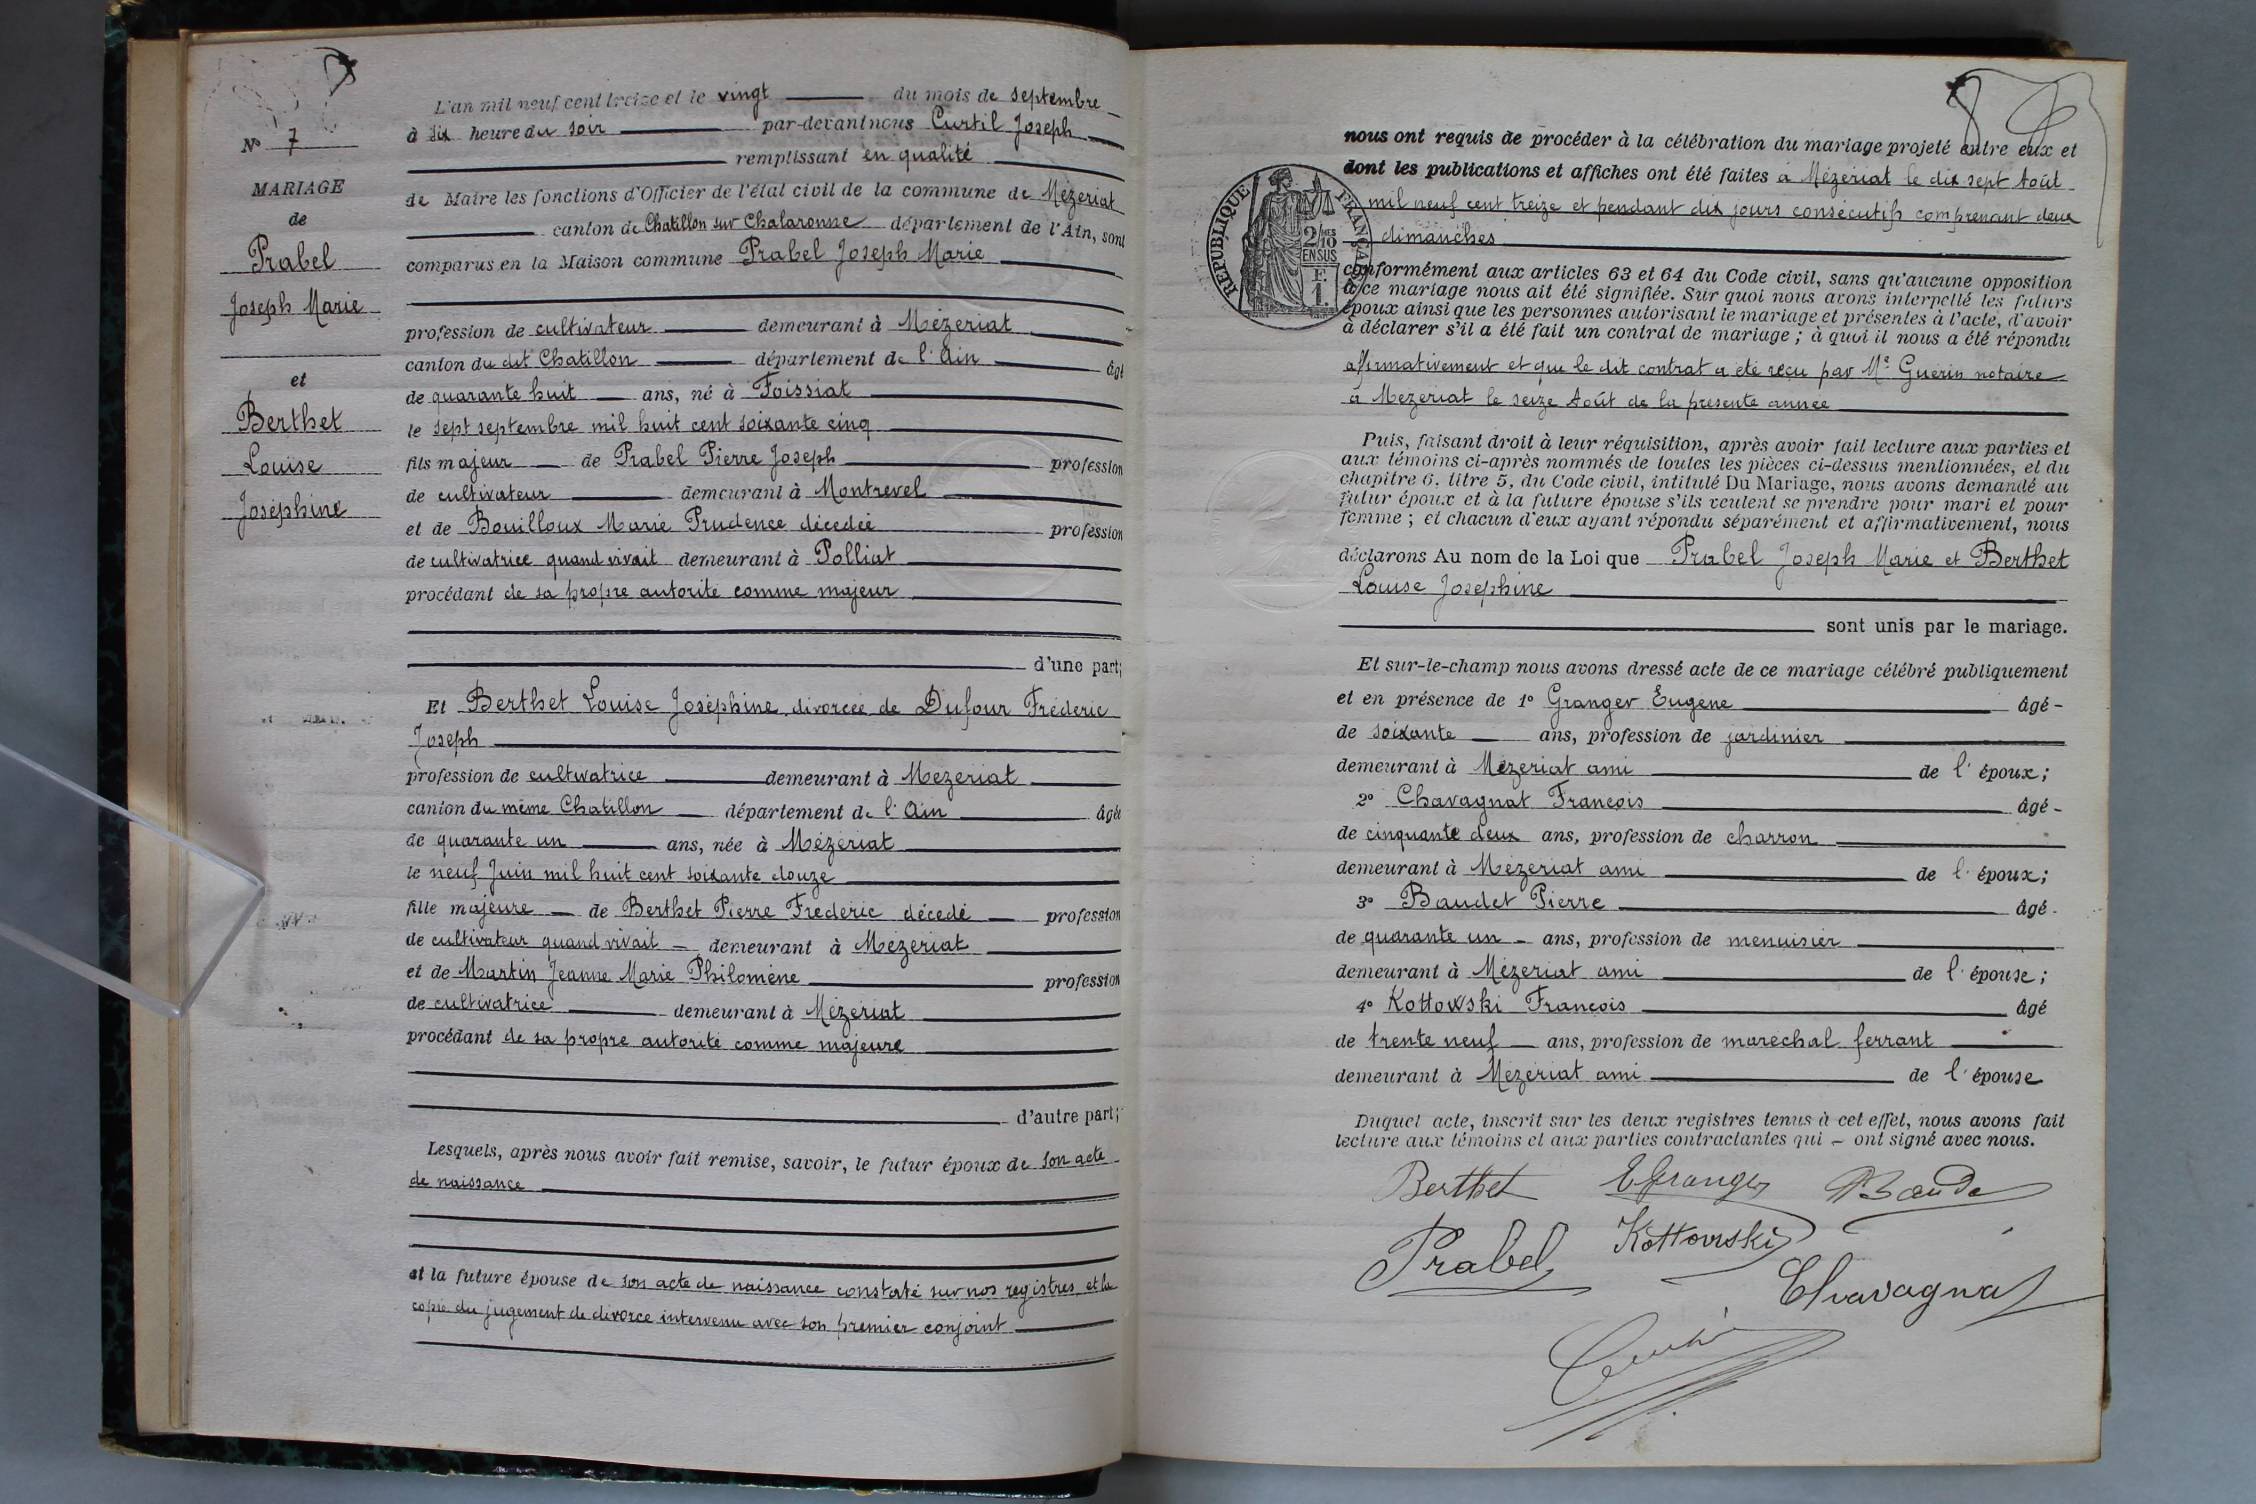 N° 7
MARIAGE
de
Prabel
Joseph Marie
et
Berthet
Louise
Joséphine
L'an mil neuf cent treize et le vingt du mois de septembre
à six heure du soir par-devant nous Curtil Joseph
remplissant en qualité
de Maire les fonctions d'Officier de l'état civil de la commune de Mézériat
canton de Chatillon sur Chalaronne département de l'Ain, sont
comparus en la Maison commune Prabel Joseph Marie
profession de cultivateur demeurant à Mézériat
canton du dit Chatillon département de l'Ain âgé
de quarante huit ans, né à Foissiat
le sept septembre mil huit cent soixante cinq
fils majeur de Prabel Pierre Joseph profession
de cultivateur demeurant à Montrevel
et de Bouilloux Marie Prudence décédée profession
de cultivatrice quand vivait demeurant à Polliat
procédant de sa propre autorité comme majeur
d'une part;
Et Berthet Louise Joséphine divorcée de Dufour Fréderic
Joseph
profession de cultivatrice demeurant à Mézériat
canton du même Chatillon département de l'Ain âgée
de quarante un ans, née à Mézériat
le neuf Juin mil huit cent soixante douze
fille majeure de Berthet Pierre Fréderic décédé profession
de cultivateur quand vivait demeurant à Mézériat
et de Martin Jeanne Marie Philomène profession
de cultivatrice demeurant à Mézériat
procédant de sa propre autorité comme majeure
d'autre part;
Lesquels, après nous avoir fait remise, savoir, le futur époux de son acte
de naissance
et la future épouse de son acte de naissance constaté sur nos registres et la
copie du jugement de divorce intervenu avec son premier conjoint
nous ont requis de procéder à la célébration du mariage projeté entre eux et
dont les publications et affiches ont été faites à Mézériat le dix sept Août
mil neuf cent treize et pendant dix jours consécutifs comprenant deux
dimanches
REPUBLIQUE FRANÇAISE
2/10 EN SUS
F. 1.
conformément aux articles 63 et 64 du Code civil, sans qu'aucune opposition
à ce mariage nous ait été signifiée. Sur quoi nous avons interpellé les futurs
époux ainsi que les personnes autorisant le mariage et présentes à l'acte, d'avoir
à déclarer s'il a été fait un contrat de mariage ; à quoi il nous a été répondu
affirmativement et que le dit contrat a été reçu par Me Guérin notaire
à Mézériat le seize Août de la présente année
Puis, faisant droit à leur réquisition, après avoir fait lecture aux parties et
aux témoins ci-après nommés de toutes les pièces ci-dessus mentionnées, et du
chapitre 6, titre 5, du Code civil, intitulé Du Mariage, nous avons demandé au
futur époux et à la future épouse s'ils veulent se prendre pour mari et pour
femme ; et chacun d'eux ayant répondu séparément et affirmativement, nous
déclarons Au nom de la Loi que Prabel Joseph Marie et Berthet
Louise Joséphine
sont unis par le mariage.
Et sur-le-champ nous avons dressé acte de ce mariage célébré publiquement
et en présence de 1° Granger Eugène âgé
de soixante ans, profession de jardinier
demeurant à Mézériat ami de l'époux;
2° Chavagnat François âgé
de cinquante deux ans, profession de charron
demeurant à Mézériat ami de l'époux;
3° Baudet Pierre âgé
de quarante un ans, profession de menuisier
demeurant à Mézériat ami de l'épouse;
4° Kottowski François âgé
de trente neuf ans, profession de maréchal ferrant
demeurant à Mézériat ami de l'épouse
Duquel acte, inscrit sur les deux registres tenus à cet effet, nous avons fait
lecture aux témoins et aux parties contractantes qui ont signé avec nous.
Berthet E Granger Baudet
Prabel Kottowski
Chavagnat